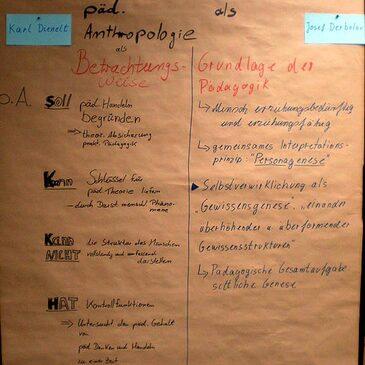 Karl Dienelt
päd. als
Josef Derbolav
Anthropologie
als
Betrachtungs-
weise
p.A. Soll päd. Handeln
Begründen
→ theor. Absicherung
prakt. Pädagogik
Kann Schlüssel für
päd. Theorie liefern
- durch Darst. menschl. Phäno-
mene
Kann
NICHT die Struktur des Menschen
vollständig und umfassend
darstellen
HAT Kontrollfunktionen
→ Untersucht den päd. Gehalt
von
päd Denken und Handeln
zu einer Zeit
Grundlage der
Pädagogik
↳ Mensch erziehungsbedürftig
und erziehungsfähig
↳ gemeinsames Interpretations-
prinzip: "Personagenese"
▸ Selbstverwirklichung als
"Gewissensgenese", "einander
überhöhender u. überformender
Gewissensstrukturen"
↳ Pädagogische Gesamtaufgabe
sittliche Genese